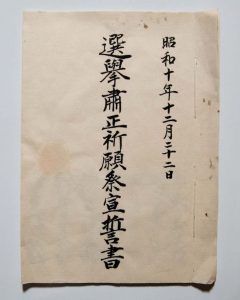 昭和十年十二月二十二日
選擧肅正祈願祭宣誓書